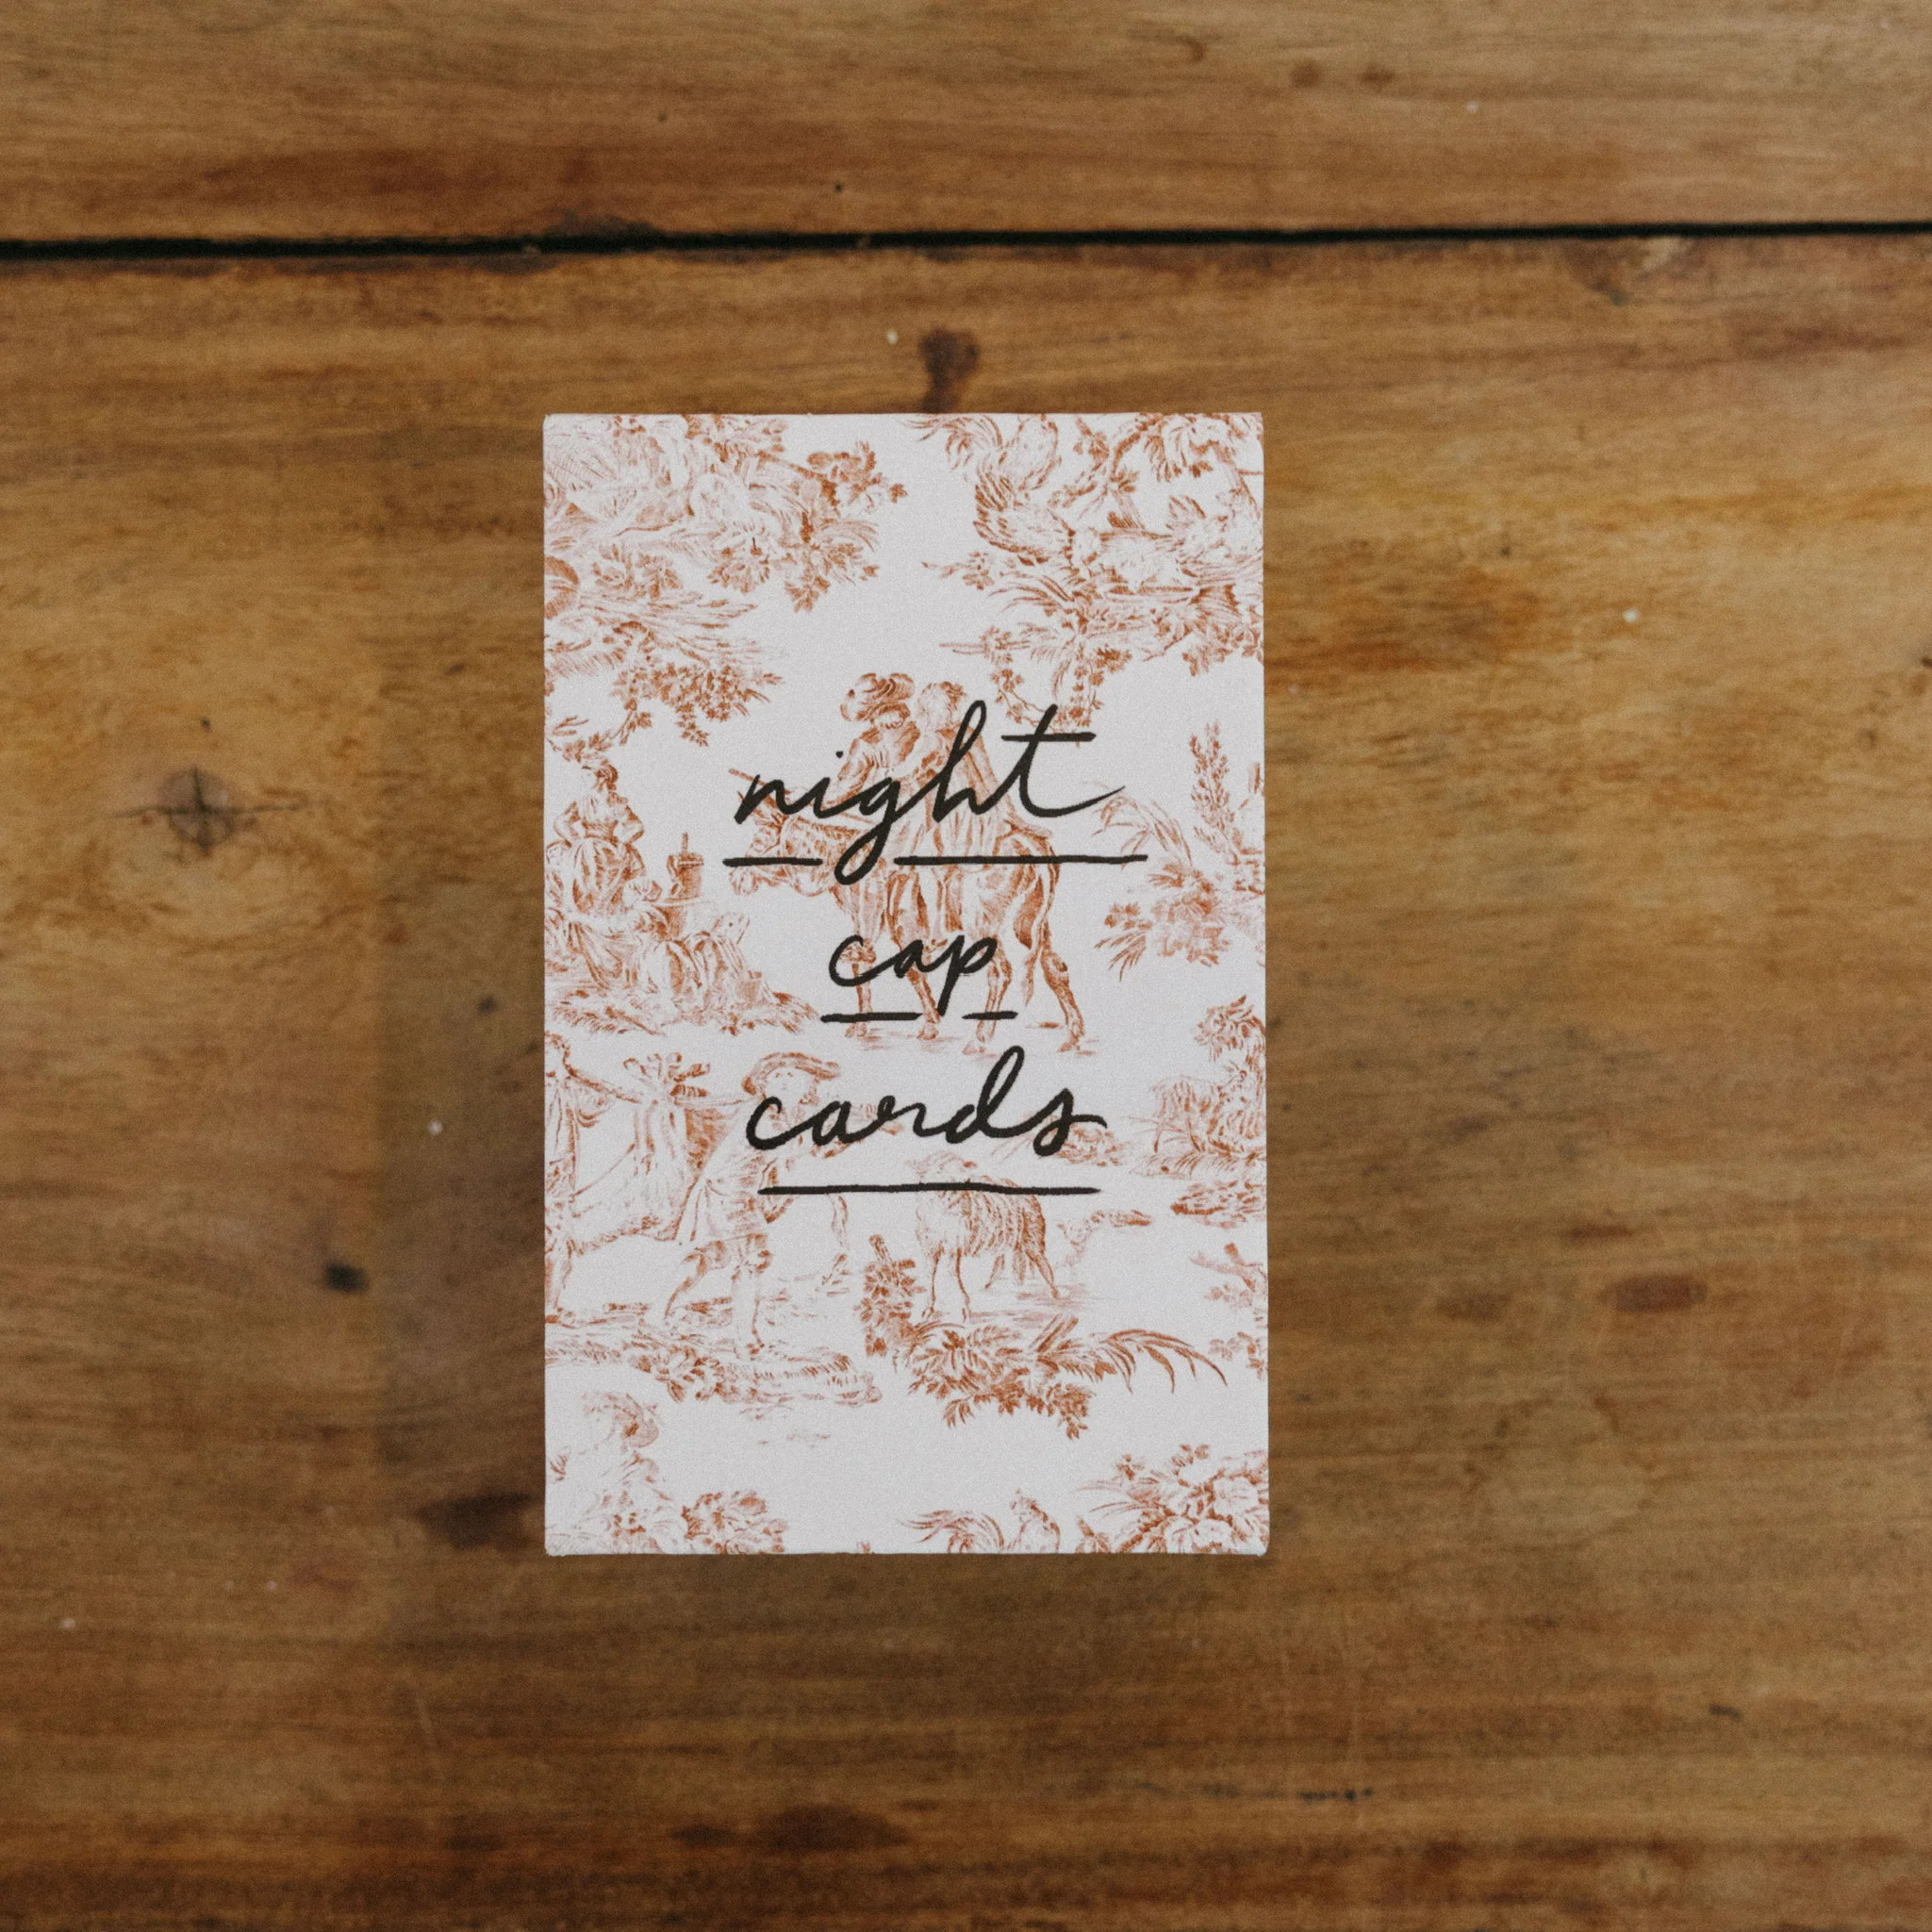 night
cap
cards